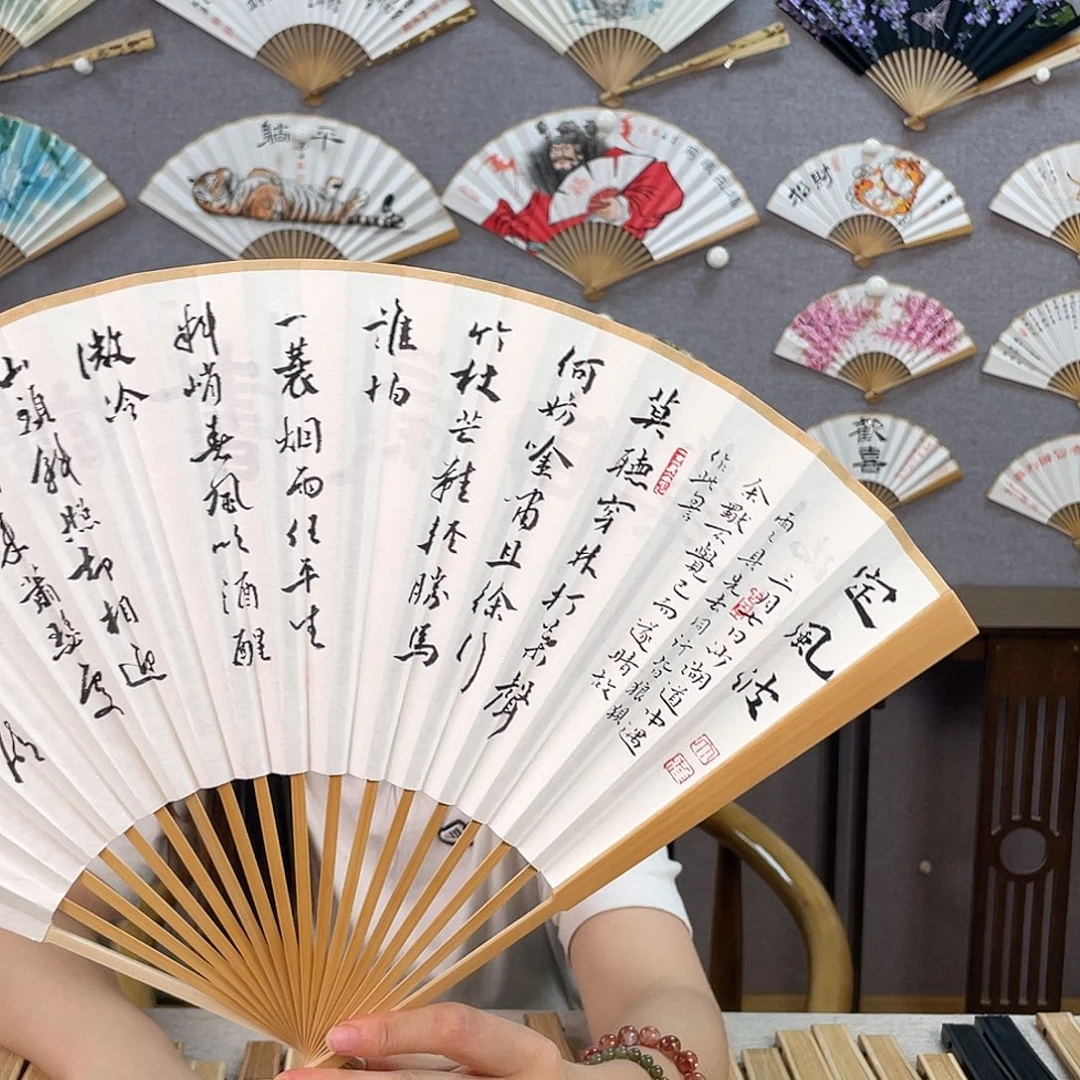 躺平
招財
歡喜
定風波
三月七日沙湖道中遇
雨雨具先去同行皆狼狽
余獨不覺已而遂晴故
作此
莫聽穿林打葉聲
何妨唫嘯且徐行
竹杖芒鞋輕勝馬
誰怕
一蓑烟雨任平生
料峭春風吹酒醒
微冷
山頭斜照却相迎
來蕭瑟處